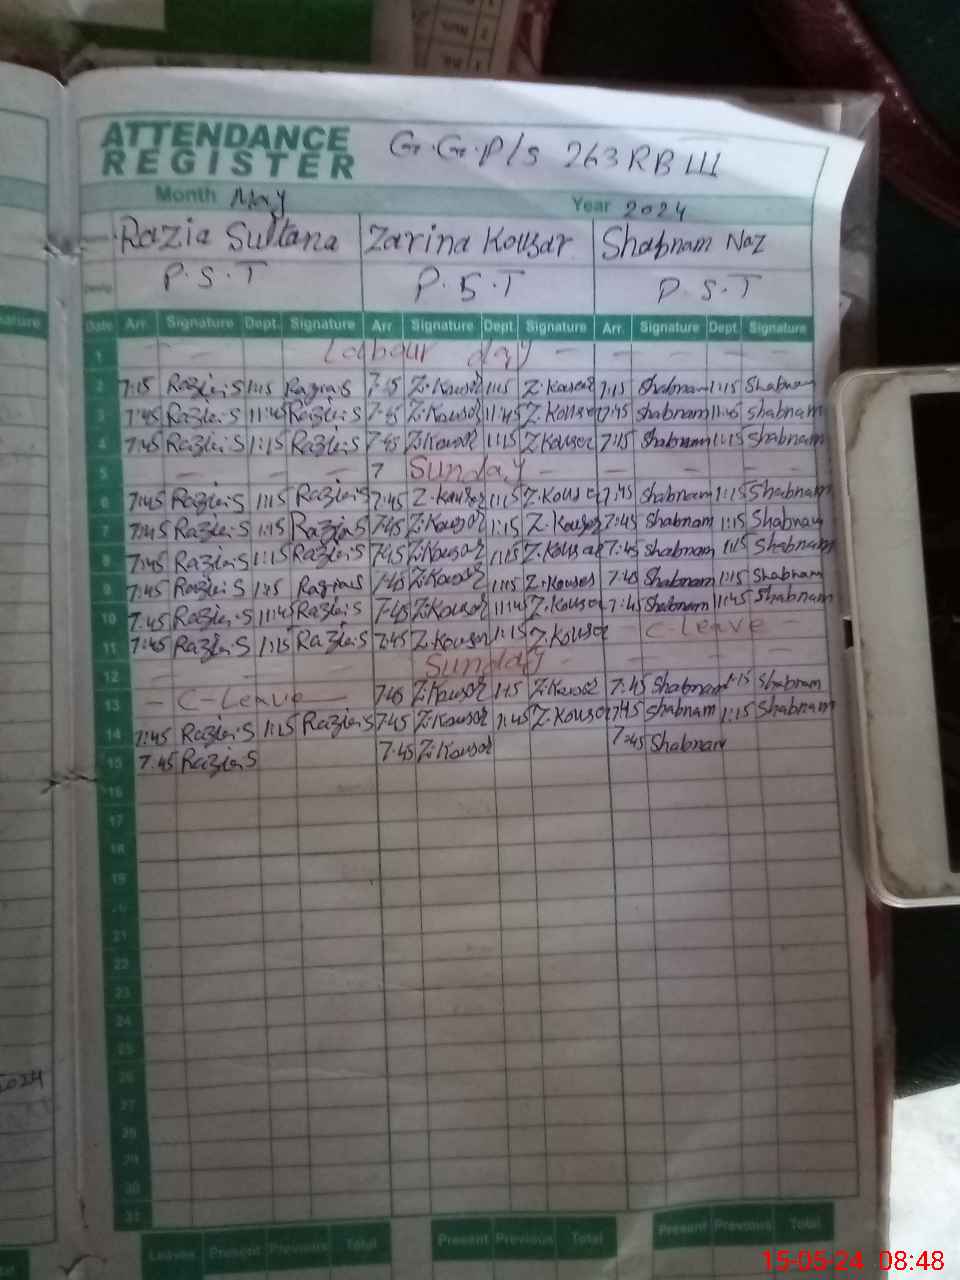 ATTENDANCE
REGISTER
G.G.P/S 263 RB III
Month May
Year 2024
Razia Sultana Zarina Kousar Shabnam Naz
P.S.T P.S.T P.S.T
Date Arr. Signature Dept. Signature Arr. Signature Dept. Signature Arr. Signature Dept. Signature
1 - - Labour day - - - -
2 7:15 Razia.S 1:15 Razia.S 7:15 Z.Kousar 1:15 Z.Kousar 7:15 Shabnam 1:15 Shabnam
3 7:45 Razia.S 11:45 Razia.S 7:45 Z.Kousar 11:45 Z.Kousar 7:45 Shabnam 11:45 Shabnam
4 7:45 Razia.S 1:15 Razia.S 7:45 Z.Kousar 1:15 Z.Kousar 7:45 Shabnam 1:15 Shabnam
5 - - - - 7 Sunday - - - - -
6 7:45 Razia.S 1:15 Razia.S 7:45 Z.Kousar 1:15 Z.Kousar 7:45 Shabnam 1:15 Shabnam
7 7:45 Razia.S 1:15 Razia.S 7:45 Z.Kousar 1:15 Z.Kousar 7:45 Shabnam 1:15 Shabnam
8 7:45 Razia.S 1:15 Razia.S 7:45 Z.Kousar 1:15 Z.Kousar 7:45 Shabnam 1:15 Shabnam
9 7:45 Razia.S 1:15 Razia.S 7:45 Z.Kousar 1:15 Z.Kousar 7:45 Shabnam 1:15 Shabnam
10 7:45 Razia.S 11:45 Razia.S 7:45 Z.Kousar 11:45 Z.Kousar 7:45 Shabnam 11:45 Shabnam
11 7:45 Razia.S 1:15 Razia.S 7:45 Z.Kousar 1:15 Z.Kousar - C-Leave -
12 - - - - Sunday - - - - -
13 - C-Leave - 7:45 Z.Kousar 1:15 Z.Kousar 7:45 Shabnam 1:15 Shabnam
14 7:45 Razia.S 1:15 Razia.S 7:45 Z.Kousar 1:45 Z.Kousar 7:45 Shabnam 1:15 Shabnam
15 7:45 Razia.S 7:45 Z.Kousar 7:45 Shabnam
16
17
18
19
21
22
23
24
25
26
27
28
29
30
31
Leaves Present Previous Total Present Previous Total Present Previous Total
15-05-24 08:48